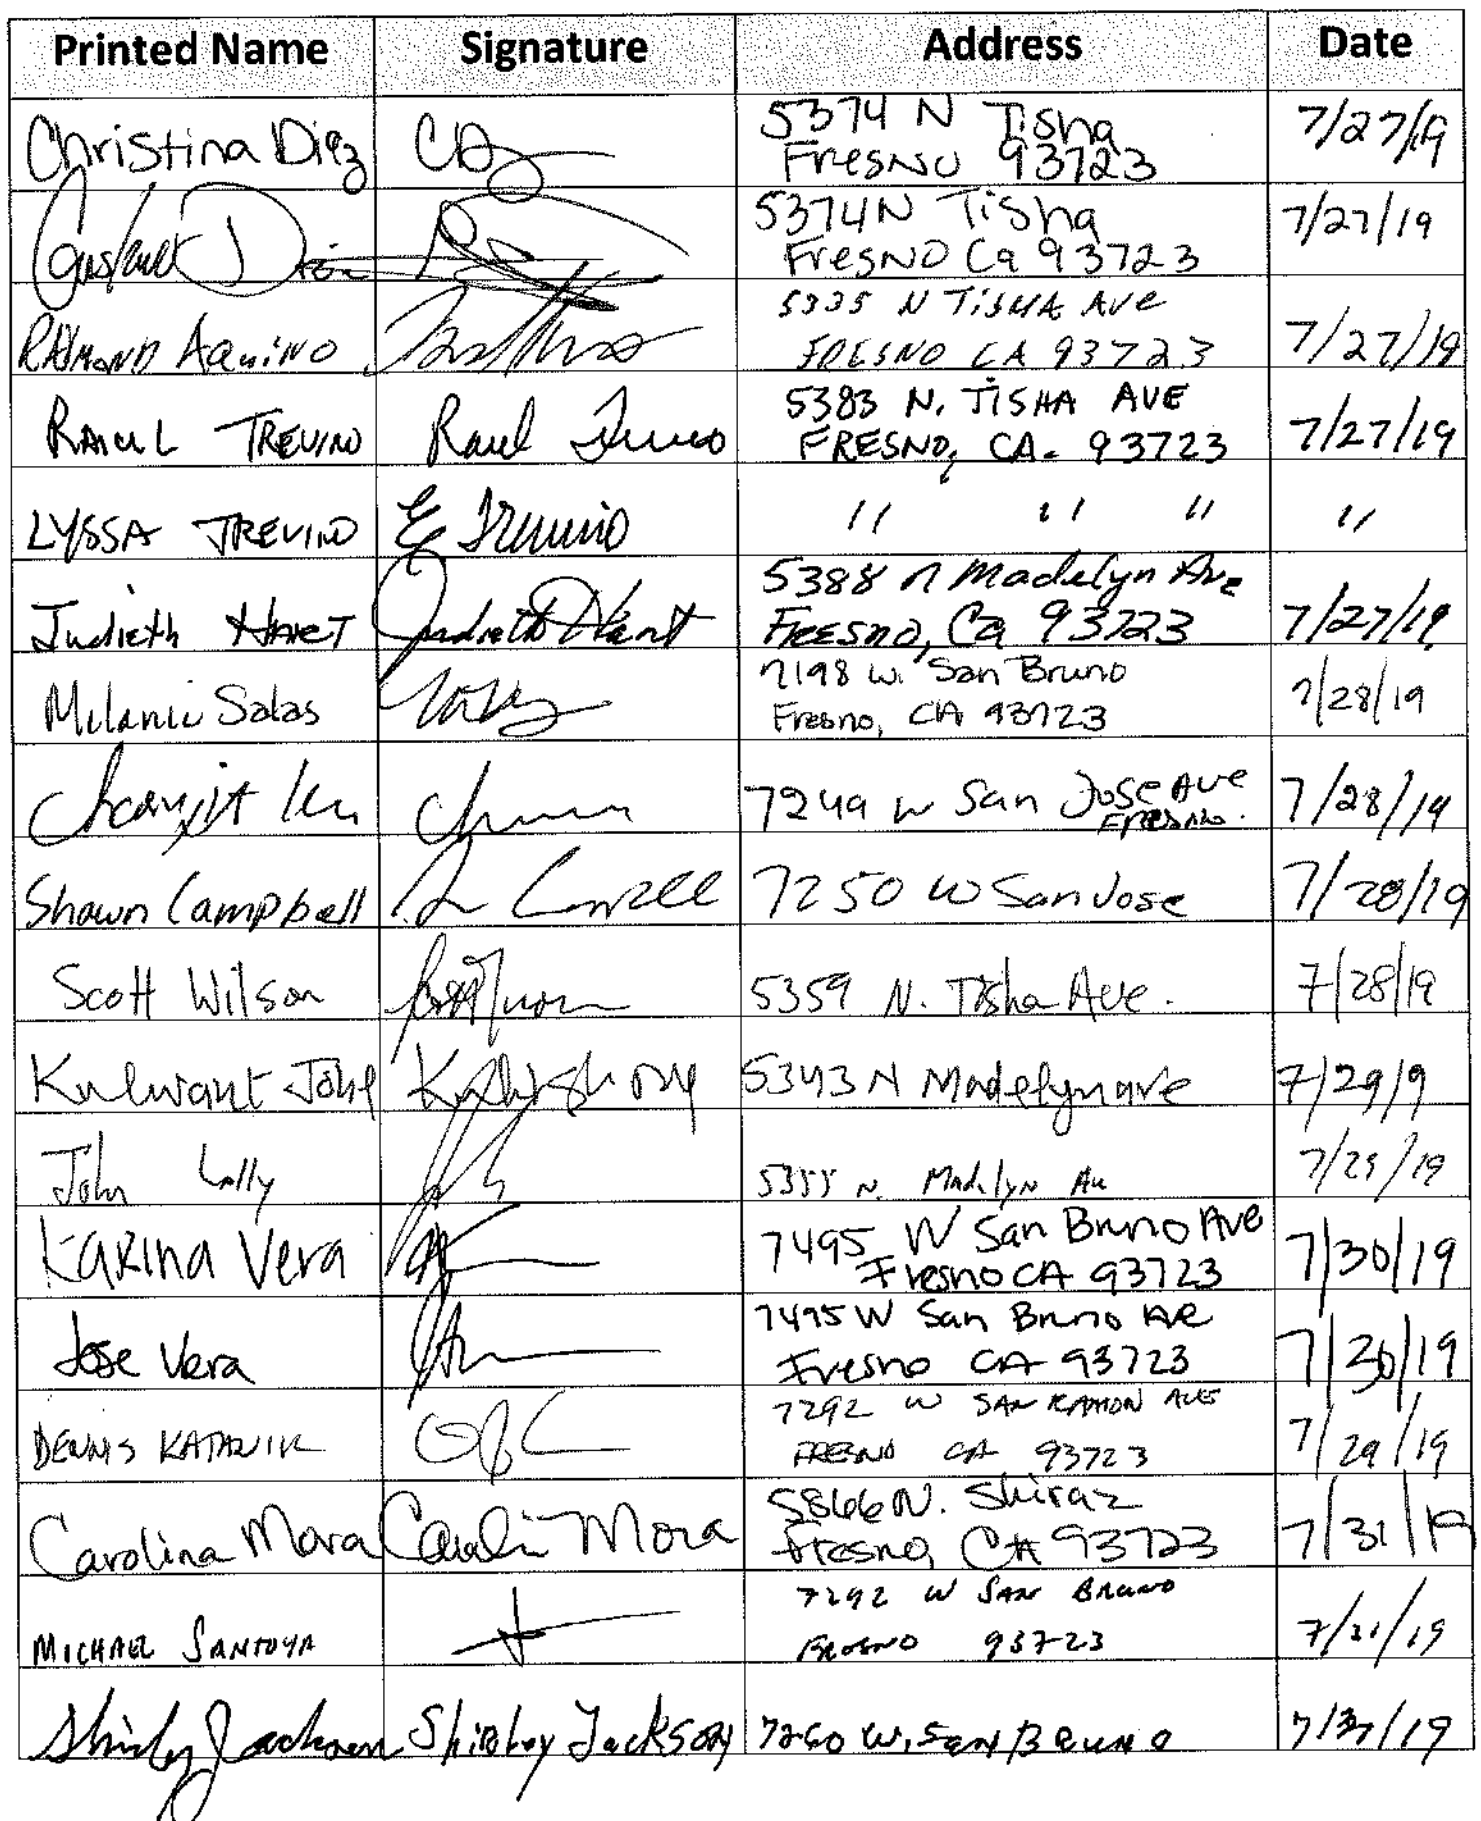 Printed Name Signature Address Date
Christina Diez CD 5374 N Tisha 7/27/19
Fresno 93723
5374 N Tisha 7/27/19
Fresno Ca 93723
RAYMOND AQUINO 5335 N TISHA AVE 7/27/19
FRESNO CA 93723
RAUL TREVINO Raul Trevino 5383 N. TISHA AVE 7/27/19
FRESNO, CA. 93723
LYSSA TREVINO E Trevino " " " "
Judieth HART Judieth Hart 5388 N Madelyn Ave 7/27/19
Fresno, Ca 93723
Melanie Salas 7198 W. San Bruno 7/28/19
Fresno, CA 93723
Charnjit 7249 W San Jose Ave 7/28/19
Fresno.
Shawn Campbell 7250 W San Jose 7/28/19
Scott Wilson 5359 N. Tisha Ave. 7/28/19
Kulwant Johl 5343 N Madelyn ave 7/29/9
John Lally 5355 N. Madelyn Av 7/29/19
KARINA Vera 7495 W San Bruno Ave 7/30/19
Fresno CA 93723
Jose Vera 7495 W San Bruno Ave 7/30/19
Fresno CA 93723
DENNIS 7292 W SAN RAMON AVE 7/29/19
FRESNO CA 93723
Carolina Mora Carolin Mora 5866 N. Shiraz 7/31/19
Fresno, CA 93723
MICHAEL SANTOYA 7292 W SAN BRUNO 7/31/19
FRESNO 93723
Shirley Jackson Shirley Jackson 7260 W. San Bruno 7/31/19